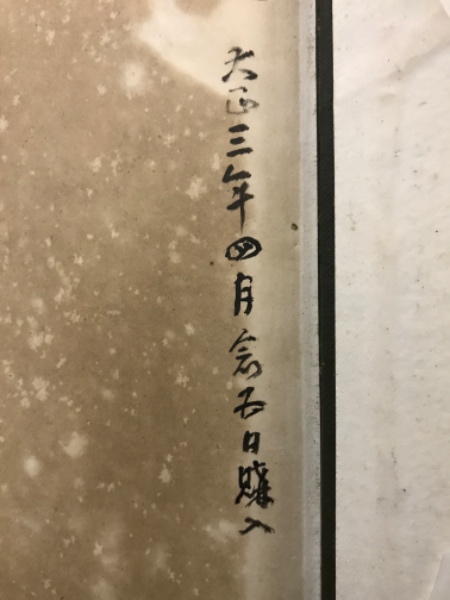 大正三年四月念五日購入